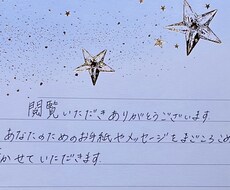 閲覧いただきありがとうございます
あなたのためのお手紙やメッセージをまごころこめ
かせていただきます